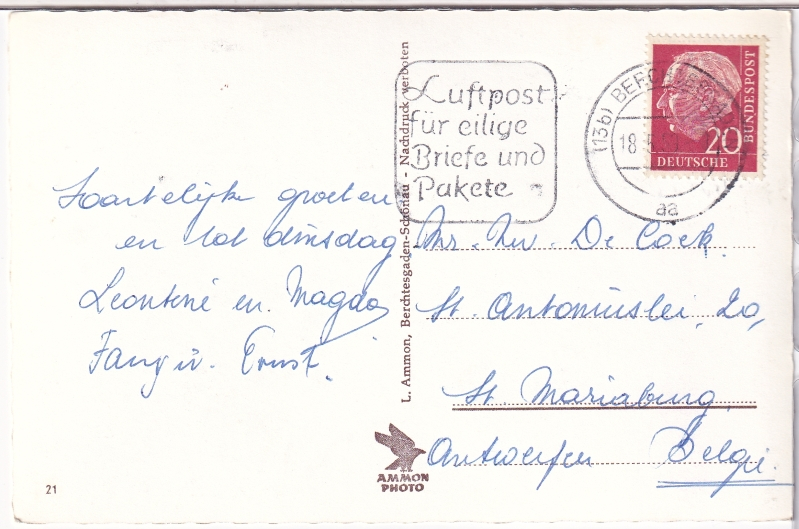 Hartelijke groeten
en tot dinsdag
Leontine en Magda
en Ernst.
21
L. Ammon, Berchtesgaden-Schönau - Nachdruck verboten
AMMON
PHOTO
Luftpost
für eilige
Briefe und
Pakete
(13b) BERCHTESGADEN
18.5.
aa
20
DEUTSCHE
BUNDESPOST
Mr. Mv. De Cock
St. Antoniuslei, 20,
St Mariaburg
Antwerpen België.